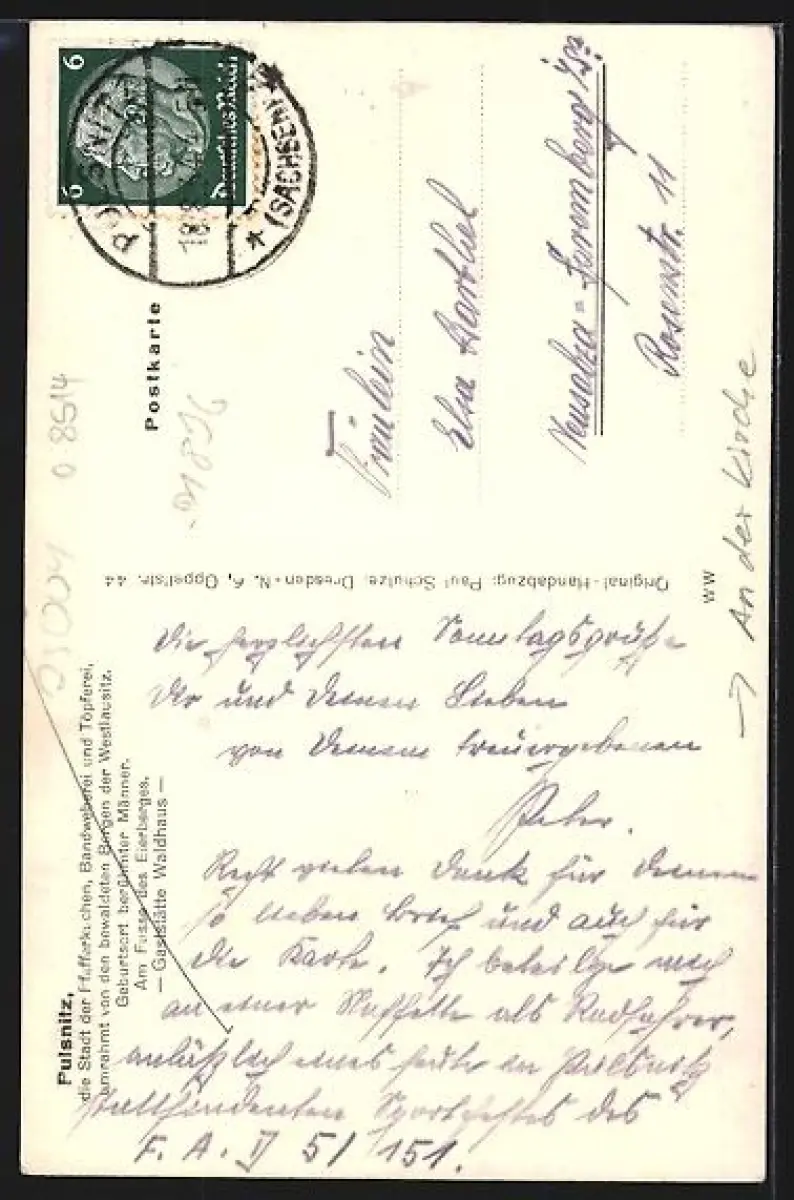 Pulsnitz,
die Stadt der Pfefferkuchen, Bandweberei und Töpferei,
umrahmt von den bewaldeten Bergen der Westlausitz.
Geburtsort berühmter Männer.
Am Fusse des Eierberges.
— Gaststätte Waldhaus —
Postkarte
6 Deutsches Reich 6
PULSNITZ
* (SACHSEN) *
Fräulein
Elsa Barthel
Neusalza-Spremberg i/Sa.
Rosenstr. 11
→ An der Kirche
WW
Original-Handabzug: Paul Schulze, Dresden-N. 6, Oppellstr. 44
08514
Die herzlichsten Sonntagsgrüße
Dir und Deinen Lieben
von Deinem treuergebenen
Peter.
Recht vielen Dank für Deinen
so lieben Brief und auch für
die Karte. Ich beteilige mich
an einer Staffette als Radfahrer,
anläßlich eines heute in Pulsnitz
stattfindenten Sportfestes des
F. A. D 5/151.